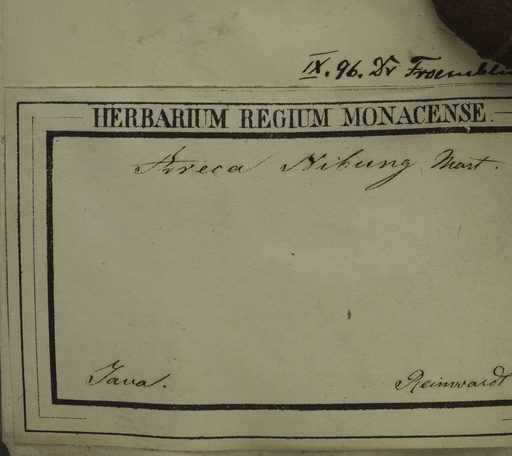 IX. 96. Dr
HERBARIUM REGIUM MONACENSE.
Areca Nibung Mart.
Java.
Reinwardt